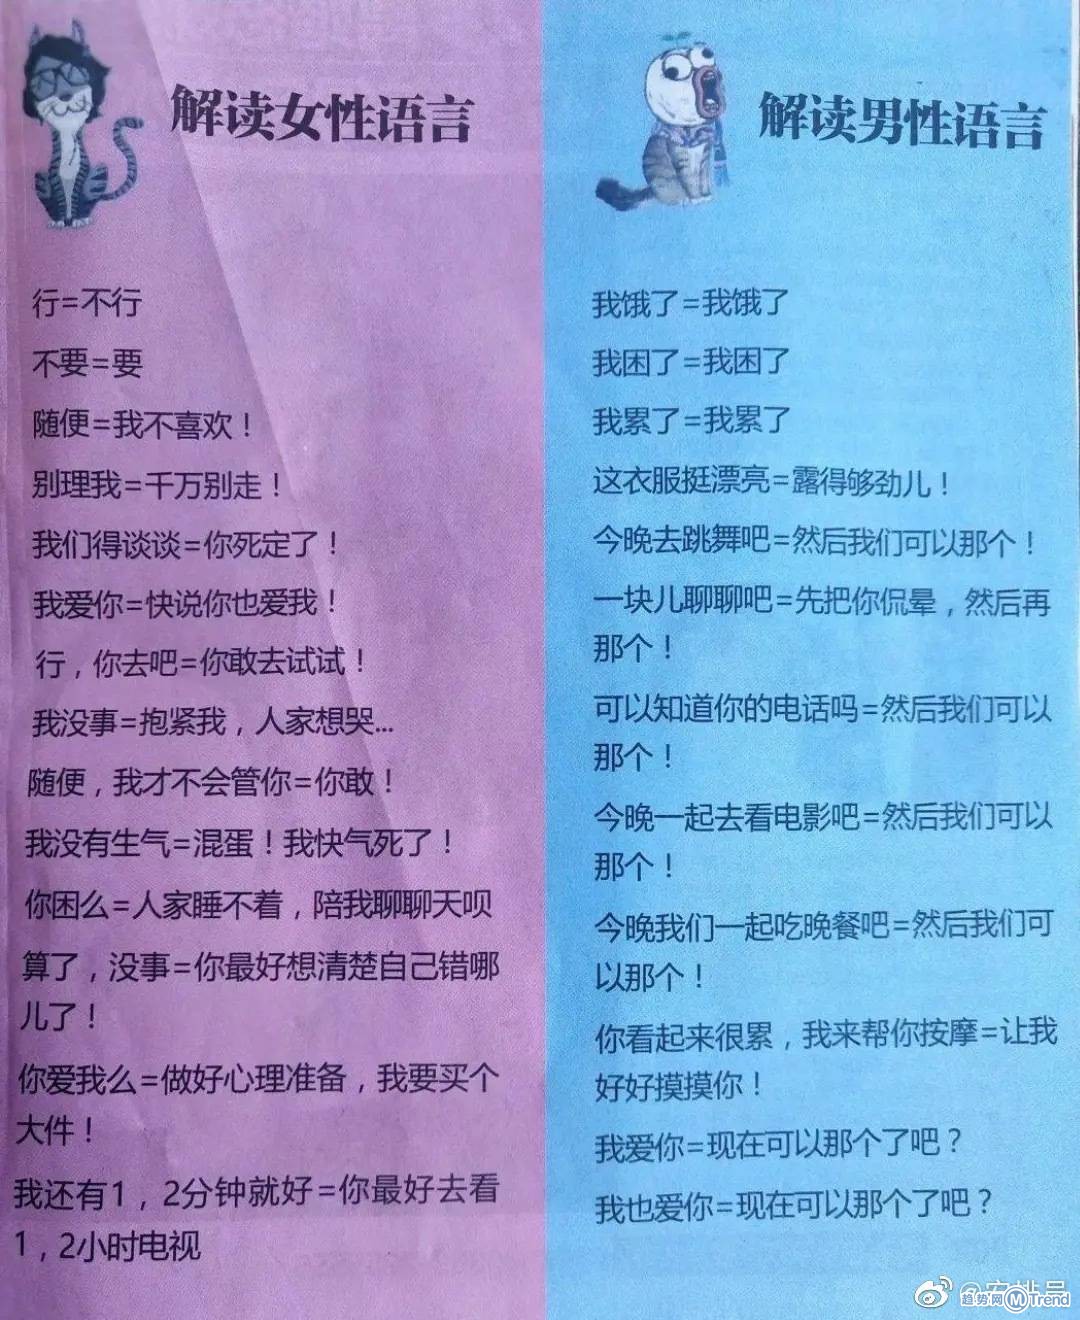 解读女性语言
行=不行
不要=要
随便=我不喜欢！
别理我=千万别走！
我们得谈谈=你死定了！
我爱你=快说你也爱我！
行，你去吧=你敢去试试！
我没事=抱紧我，人家想哭...
随便，我才不会管你=你敢！
我没有生气=混蛋！我快气死了！
你困么=人家睡不着，陪我聊聊天呗
算了，没事=你最好想清楚自己错哪
儿了！
你爱我么=做好心理准备，我要买个
大件！
我还有1，2分钟就好=你最好去看
1，2小时电视
解读男性语言
我饿了=我饿了
我困了=我困了
我累了=我累了
这衣服挺漂亮=露得够劲儿！
今晚去跳舞吧=然后我们可以那个！
一块儿聊聊吧=先把你侃晕，然后再
那个！
可以知道你的电话吗=然后我们可以
那个！
今晚一起去看电影吧=然后我们可以
那个！
今晚我们一起吃晚餐吧=然后我们可
以那个！
你看起来很累，我来帮你按摩=让我
好好摸摸你！
我爱你=现在可以那个了吧？
我也爱你=现在可以那个了吧？
趋势网 M Trend